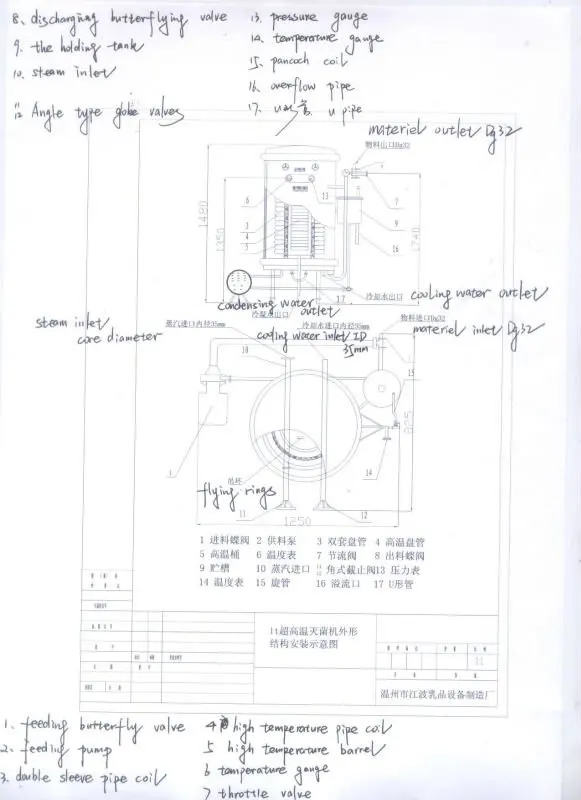 8、discharging butterflying valve
9、the holding tank
10、steam inlet
11
12、Angle type globe valves
13、pressure gauge
14、temperature gauge
15、pancoch coil
16、overflow pipe
17、U型管、u pipe
materiel outlet Dg32
物料出口Dg32
1480
1350
1740
6
3
4
5
13
7
9
16
17
冷却水出口
cooling water outlet
condensing water outlet
冷凝水出口
steam inlet
core diameter
蒸汽进口内径35mm
冷却水进口内径35mm
cooling water inlet ID
35mm
物料进口Dg32
materiel inlet Dg32
10
15
825
1
14
吊环
flying rings
11
12
1250
1 进料蝶阀 2 供料泵 3 双套盘管 4 高温盘管
5 高温桶 6 温度表 7 节流阀 8 出料蝶阀
9 贮槽 10 蒸汽进口 11 12 角式截止阀13 压力表
14 温度表 15 旋管 16 溢流口 17 U形管
1t超高温灭菌机外形
结构安装示意图
温州市江波乳品设备制造厂
1、feeding butterfly valve
2、feeding pump
3、double sleeve pipe coil
4 high temperature pipe coil
5 high temperature barrel
6 temperature gauge
7 throttle valve